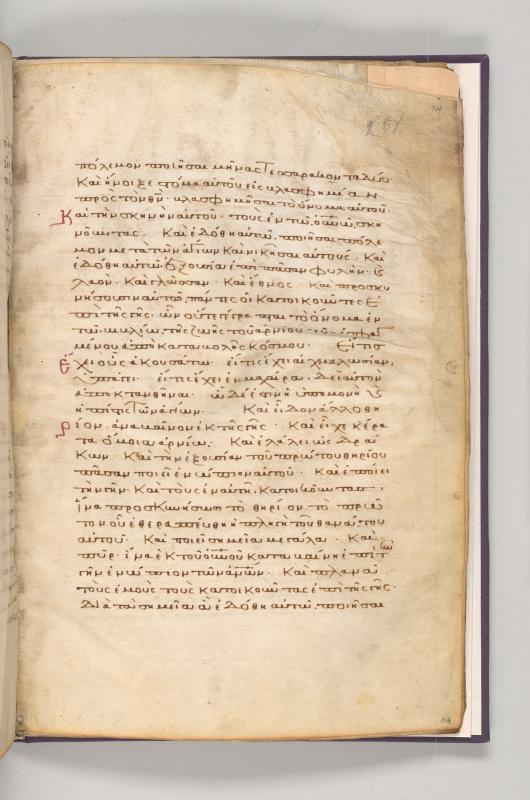 261
πόλεμον ποιῆσαι μῆνας Τεσσαρακοντα δύο·
Καὶ ἤνοιξε στόμα αὐτοῦ εἰς βλασφημίαν
πρὸς τὸν θν̄· βλασφημῆσαι τὸ ὄνομα αὐτοῦ
Καὶ τὴν σκηνὴν αὐτοῦ· τοὺς ἐν τῶ οὐνω σκη
νοῦντας· Καὶ ἐδόθη αὐτῶ ποιῆσαι πόλε
μον μετὰ τῶν ἁγίων Καὶ νικῆσαι αὐτούς· Καὶ
ἐδόθη αὐτῶ ἐξουσία ἐπὶ πᾶσαν φυλὴν, Καὶ
λαὸν· Καὶ γλῶσσαν· Καὶ ἔθνος· Καὶ προσκυ
νήσουσιν αὐτὸν πάντες οἱ Κατοικοῦντες ἐ
πὶ τῆς γῆς· ὧν οὐ γέγραπται τὸ ὄνομα ἐν
τῶ βιβλίω τῆς ζωῆς τοῦ ἀρνίου τοῦ ἐσφαγ
μένου ἀπὸ Καταβολῆς Κόσμου· Εἴ τις
ἔχει οὖς ἀκουσάτω· εἴ τις ἔχει αἰχμαλωσίαν,
ὑπάγει· εἴ τις ἐν μαχαίρα· δεῖ αὐτὸν
ἀποκτανθῆναι· ὧδέ ἐστιν ἡ ὑπομονὴ Καὶ
ἡ πίστις τῶν ἁγίων· Καὶ εἶδον ἄλλο θη
ρίον ἀναβαῖνον ἐκ τῆς γῆς· Καὶ εἶχε Κέρα
τα ὅμοια ἀρνίω· Καὶ ἐλάλει ὡς δρά
Κων· Καὶ τὴν ἐξουσίαν τοῦ πρώτου θηρίου
πᾶσαν ποιεῖ ἐνώπιον αὐτοῦ· Καὶ ἐποίει
τὴν γῆν· Καὶ τοὺς ἐν αὐτῆ Κατοικοῦντας
ἵνα προσκυνήσωσι τὸ θηρίον τὸ πρῶ
τον οὗ ἐθεραπεύθη ἡ πληγὴ τοῦ θανάτου
αὐτοῦ· Καὶ ποιεῖ σημεῖα μεγάλα· Καὶ
πῦρ· ἵνα ἐκ τοῦ οὐνοῦ Καταβαίνη ἐπὶ τὴν
γῆν ἐνώπιον τῶν ἀνων· Καὶ πλανᾶ
τοὺς ἐμοὺς τοὺς Κατοικοῦντας ἐπὶ τῆς γῆς·
Διὰ τὰ σημεῖα ἃ ἐδόθη αὐτῶ ποιῆσαι